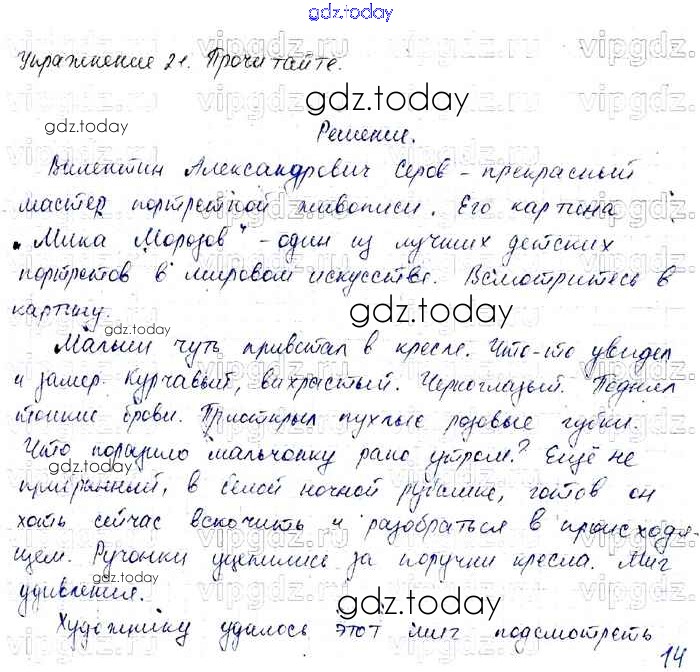 gdz.today
Упражнение 21. Прочитайте.
gdz.today
gdz.today
Решение.
Валентин Александрович Серов - прекрасный
мастер портретной живописи. Его картина
„Мика Морозов" - один из лучших детских
портретов в мировом искусстве. Всмотритесь в
картину.
gdz.today
gdz.today
Малыш чуть привстал в кресле. Что-то увидел
и замер. Курчавый, вихрастый. Черноглазый. Поднял
тонкие брови. Приоткрыл пухлые розовые губки.
Что поразило мальчонку рано утром? Ещё не
gdz.today
прибранный, в белой ночной рубашке, готов он
хоть сейчас вскочить и разобраться в происходя-
щем. Ручонки уцепились за поручни кресла. Миг
gdz.today
удивления.
gdz.today
Художнику удалось этот миг подсмотреть
14